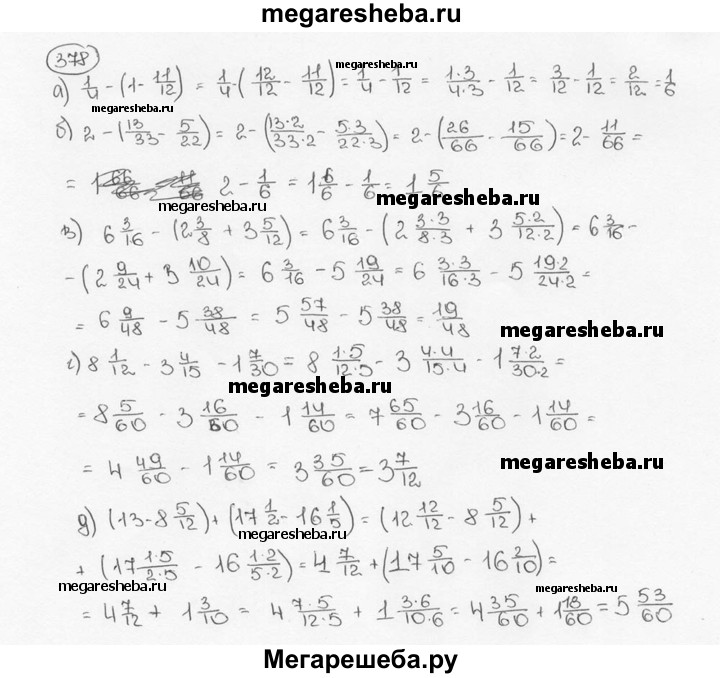 megaresheba.ru
378
а) 1/4 - (1 - 11/12) = 1/4 - (12/12 - 11/12) = 1/4 - 1/12 = 1·3/4·3 - 1/12 = 3/12 - 1/12 = 2/12 = 1/6
megaresheba.ru
megaresheba.ru
б) 2 - (13/33 - 5/22) = 2 - (13·2/33·2 - 5·3/22·3) = 2 - (26/66 - 15/66) = 2 - 11/66 =
= 2 - 1/6 = 1 6/6 - 1/6 = 1 5/6
megaresheba.ru
megaresheba.ru
в) 6 3/16 - (2 3/8 + 3 5/12) = 6 3/16 - (2 3·3/8·3 + 3 5·2/12·2) = 6 3/16 -
- (2 9/24 + 3 10/24) = 6 3/16 - 5 19/24 = 6 3·3/16·3 - 5 19·2/24·2 =
= 6 9/48 - 5 38/48 = 5 57/48 - 5 38/48 = 19/48
megaresheba.ru
г) 8 1/12 - 3 4/15 - 1 7/30 = 8 1·5/12·5 - 3 4·4/15·4 - 1 7·2/30·2 =
megaresheba.ru
= 8 5/60 - 3 16/60 - 1 14/60 = 7 65/60 - 3 16/60 - 1 14/60 =
= 4 49/60 - 1 14/60 = 3 35/60 = 3 7/12
megaresheba.ru
д) (13 - 8 5/12) + (17 1/2 - 16 1/5) = (12 12/12 - 8 5/12) +
megaresheba.ru
+ (17 1·5/2·5 - 16 1·2/5·2) = 4 7/12 + (17 5/10 - 16 2/10) =
megaresheba.ru
megaresheba.ru
= 4 7/12 + 1 3/10 = 4 7·5/12·5 + 1 3·6/10·6 = 4 35/60 + 1 18/60 = 5 53/60
megaresheba.ru
Мегарешеба.ру